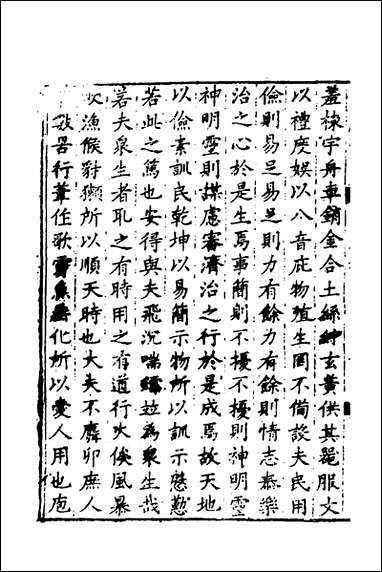 羞棟宇舟車銷金合土絲紵玄黃供其器服文
以禮度娛以八音庇物殖生罔不備設夫民用
儉則易足易足則力有餘力有餘則情志泰樂
治之心於是生焉事簡則不擾不擾則神明靈
神明靈則謀慮審濟治之行於是成焉故天地
以儉素訓民乾坤以易簡示物所以訓示慇懃
若此之篤也安得與夫飛沉喘蠕竝為衆生哉
若夫衆生者取之有時用之有道行火俟風暴
漁候豺獺所以順天時也大夫不麛卵庶人
數罟行葦作歌霄魚垂化所以愛人用也庖